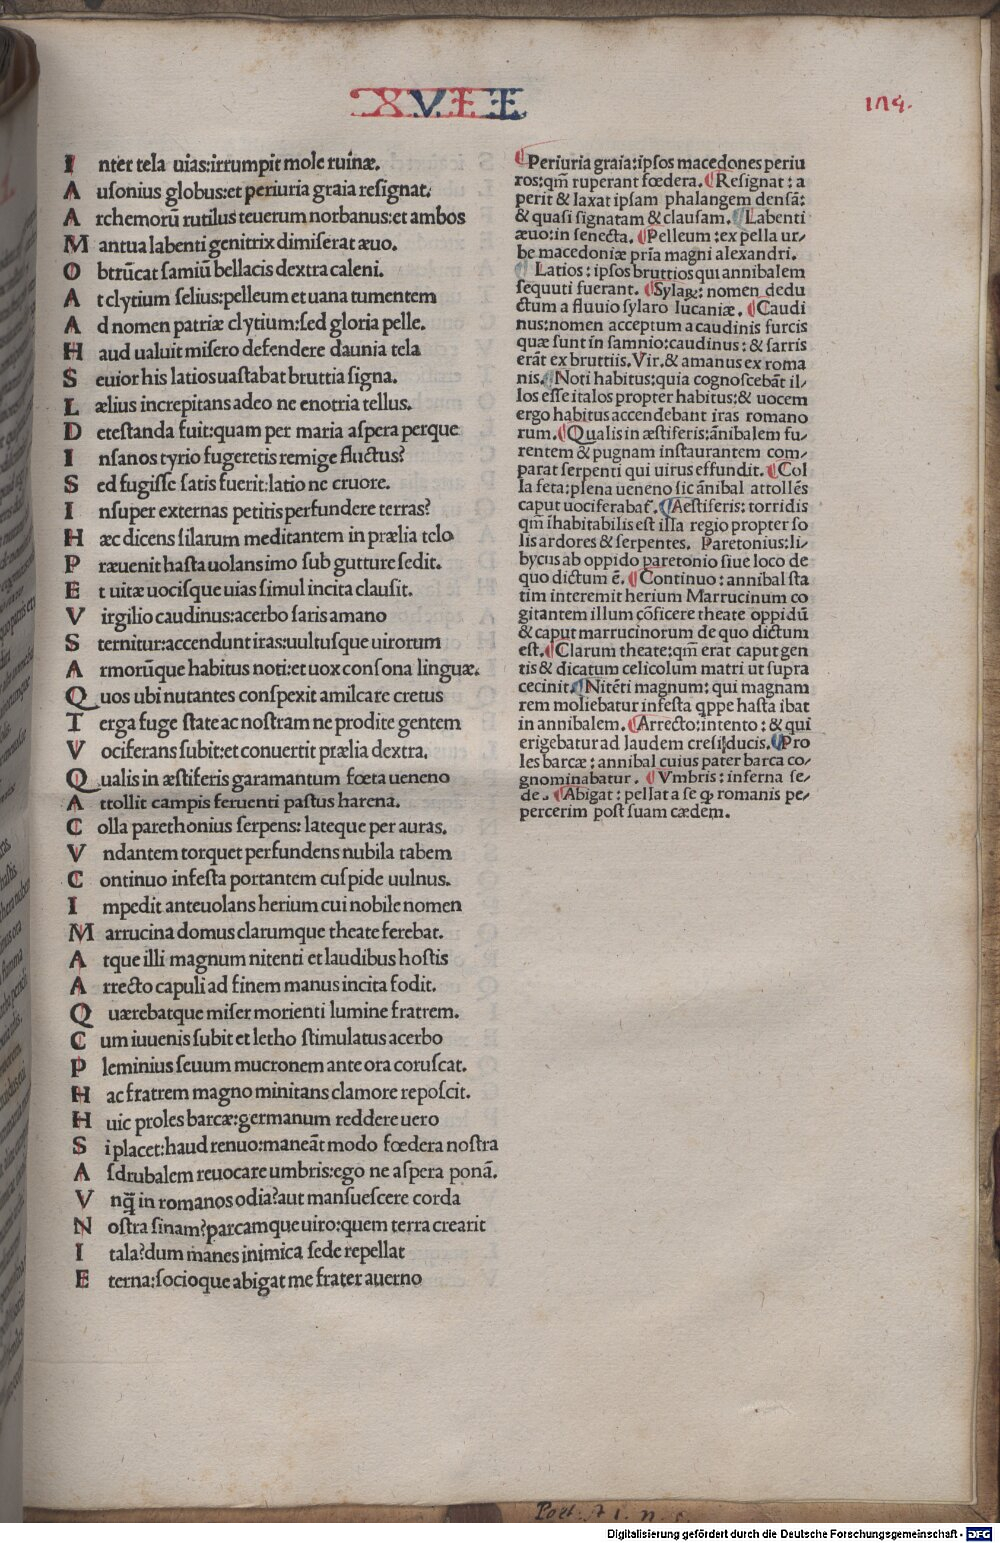 XVII
I nter tela uias:irrumpit mole ruinæ.
A usonius globus:et periuria graia resignat.
A rchemorū rutilus teuerum norbanus:et ambos
M antua labenti genitrix dimiserat æuo.
O btrūcat samiū bellacis dextra caleni.
A t clytium selius:pelleum et uana tumentem
A d nomen patriæ clytium:sed gloria pelle.
H aud ualuit misero defendere daunia tela
S euior his latios uastabat bruttia signa.
L ælius increpitans adeo ne enotria tellus.
D etestanda fuit:quam per maria aspera perque
I nsanos tyrio fugeretis remige fluctus?
S ed fugisse satis fuerit:latio ne cruore.
I nsuper externas petitis perfundere terras?
H æc dicens silarum meditantem in prælia telo
P ræuenit hasta uolans imo sub gutture sedit.
E t uitæ uocisque uias simul incita clausit.
V irgilio caudinus:acerbo saris amano
S ternitur:accendunt iras:uultusque uirorum
A rmorūque habitus noti:et uox consona linguæ.
Q uos ubi nutantes conspexit amilcare cretus
T erga fuge state ac nostram ne prodite gentem
V ociferans subit:et conuertit prælia dextra.
Q ualis in æstiferis garamantum fœta ueneno
A ttollit campis feruenti pastus harena.
C olla parethonius serpens: lateque per auras.
V ndantem torquet perfundens nubila tabem
C ontinuo infesta portantem cuspide uulnus.
I mpedit anteuolans herium cui nobile nomen
M arrucina domus clarumque theate ferebat.
A tque illi magnum nitenti et laudibus hostis
A rrecto capuli ad finem manus incita fodit.
Q uærebatque miser morienti lumine fratrem.
C um iuuenis subit et letho stimulatus acerbo
P leminius seuum mucronem ante ora coruscat.
H ac fratrem magno minitans clamore reposcit.
H uic proles barcæ:germanum reddere uero
S i placet:haud renuo:maneāt modo fœdera nostra
A sdrubalem reuocare umbris:ego ne aspera ponā.
V nq̄ in romanos odia?aut mansuescere corda
N ostra sinam?parcamque uiro:quem terra crearit
I tala?dum manes inimica sede repellat
E terna:socioque abigat me frater auerno
174.
Periuria graia:ipsos macedones periu
ros:qm̄ ruperant fœdera. Resignat: a
perit & laxat ipsam phalangem densā:
& quasi signatam & clausam. Labenti
æuo:in senecta. Pelleum:ex pella ur/
be macedoniæ pria magni alexandri.
Latios: ipsos bruttios qui annibalem
sequuti fuerant. Sylaꝝ: nomen dedu
ctum a fluuio sylaro lucaniæ. Caudi
nus:nomen acceptum a caudinis furcis
quæ sunt in samnio:caudinus: & sarris
erāt ex bruttiis. Vir. & amanus ex roma
nis. Noti habitus:quia cognoscebāt il/
los esse italos propter habitus:& uocem
ergo habitus accendebant iras romano
rum. Qualis in æstiferis:ānibalem fu/
rentem & pugnam instaurantem com/
parat serpenti qui uirus effundit. Col
la feta:plena ueneno sic ānibal attollēs
caput uociferabat̄. Aestiferis: torridis
qm̄ ihabitabilis est illa regio propter so
lis ardores & serpentes. Paretonius:li/
bycus ab oppido paretonio siue loco de
quo dictum ē. Continuo: annibal sta
tim interemit herium Marrucinum co
gitantem illum cōficere theate oppidū
& caput marrucinorum de quo dictum
est. Clarum theate:qm̄ erat caput gen
tis & dicatum celicolum matri ut supra
cecinit. Nitēti magnum: qui magnam
rem moliebatur infesta qppe hasta ibat
in annibalem. Arrecto:intento: & qui
erigebatur ad laudem cresi ducis. Pro
les barcæ: annibal cuius pater barca co/
gnominabatur. Vmbris: inferna se/
de. Abigat: pellat a se ꝙ romanis pe/
percerim post suam cædem.
Digitalisierung gefördert durch die Deutsche Forschungsgemeinschaft - DFG